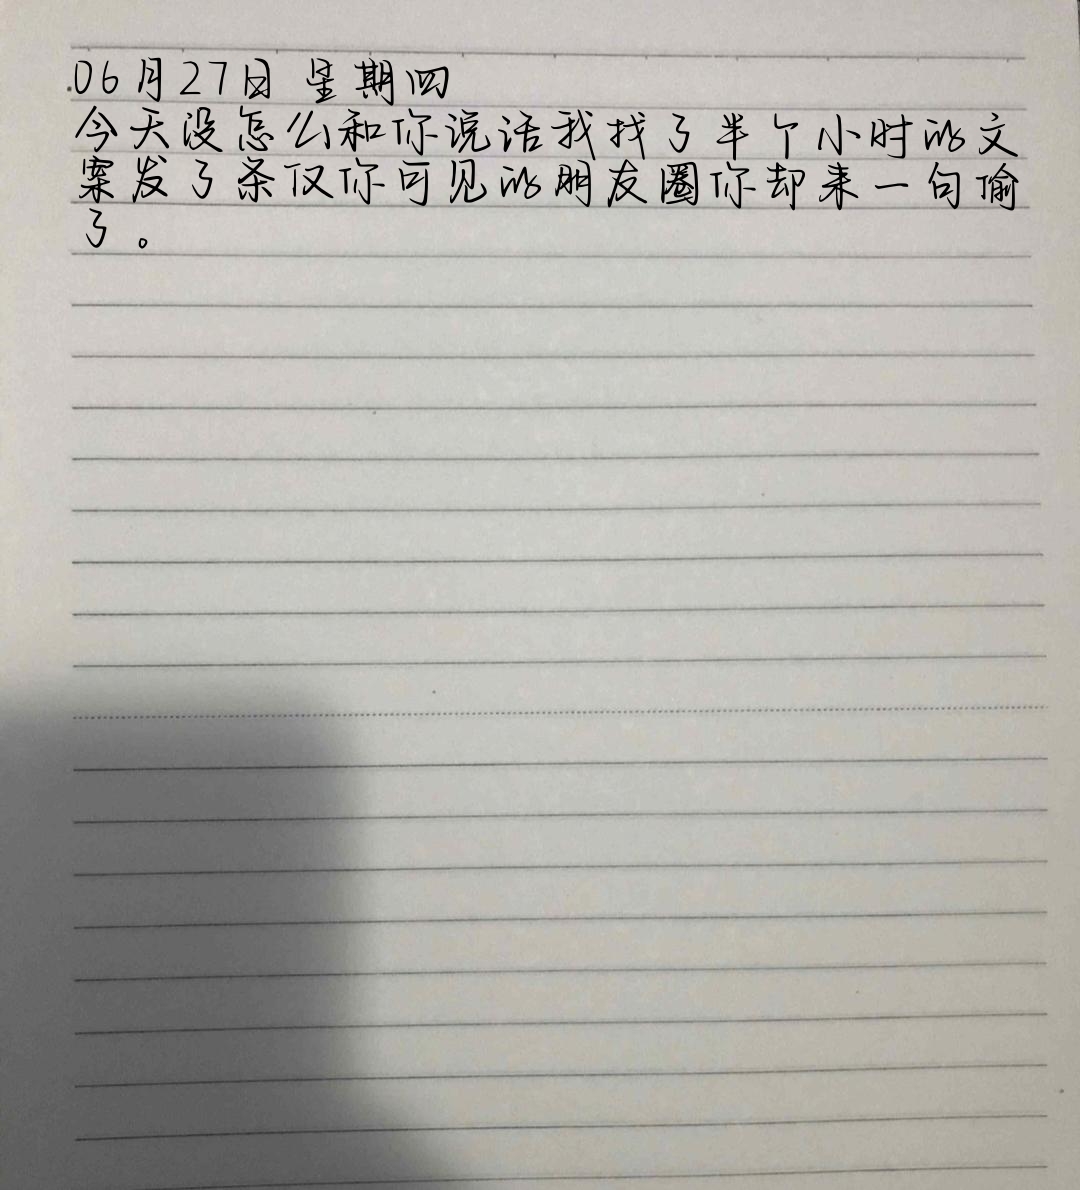 06月27日 星期四
今天没怎么和你说话我找了半个小时的文
案发了条仅你可见的朋友圈你却来一句偷
了。